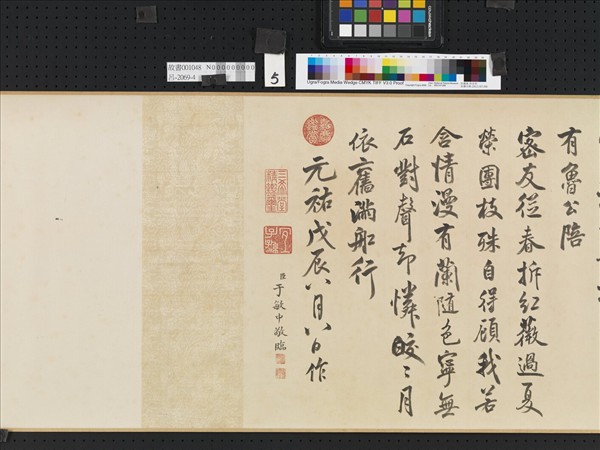 故書001048 N000000000
呂-2069-4
5
有魯公陪
密友從春拆紅薇過夏
榮團枝殊自得顧我若
含情漫有蘭隨色寧無
石對聲却憐皎〻月
依舊滿船行
元祐戊辰八月八日作
臣于敏中敬臨